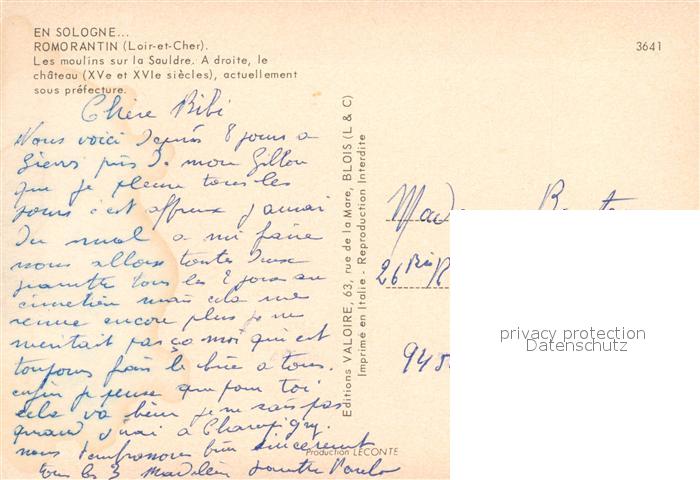 EN SOLOGNE...
ROMORANTIN (Loir-et-Cher).
Les moulins sur la Sauldre. A droite, le
château (XVe et XVIe siècles), actuellement
sous préfecture.
3641
Chère Bibi
Nous voici depuis 8 jours a
Giens près de mon
que je pleure tous les
jours c'est affreux j'aurai
Du mal a mi faire
nous allons toutes deux
tous les 2 jours au
cimetière mais cela me
remue encore plus je ne
meritait pas ça moi qui est
toujours fais le bien a tous.
enfin je pense que pour toi
cela va bien je ne sais pas
quand j'irai a Champigny.
nous t'embrassons bien sincerement
tous les 3
Editions VALOIRE, 63, rue de la Mare, BLOIS (L & C)
Imprimé en Italie - Reproduction Interdite
Production LECONTE
26 Bis R
945
privacy protection
Datenschutz